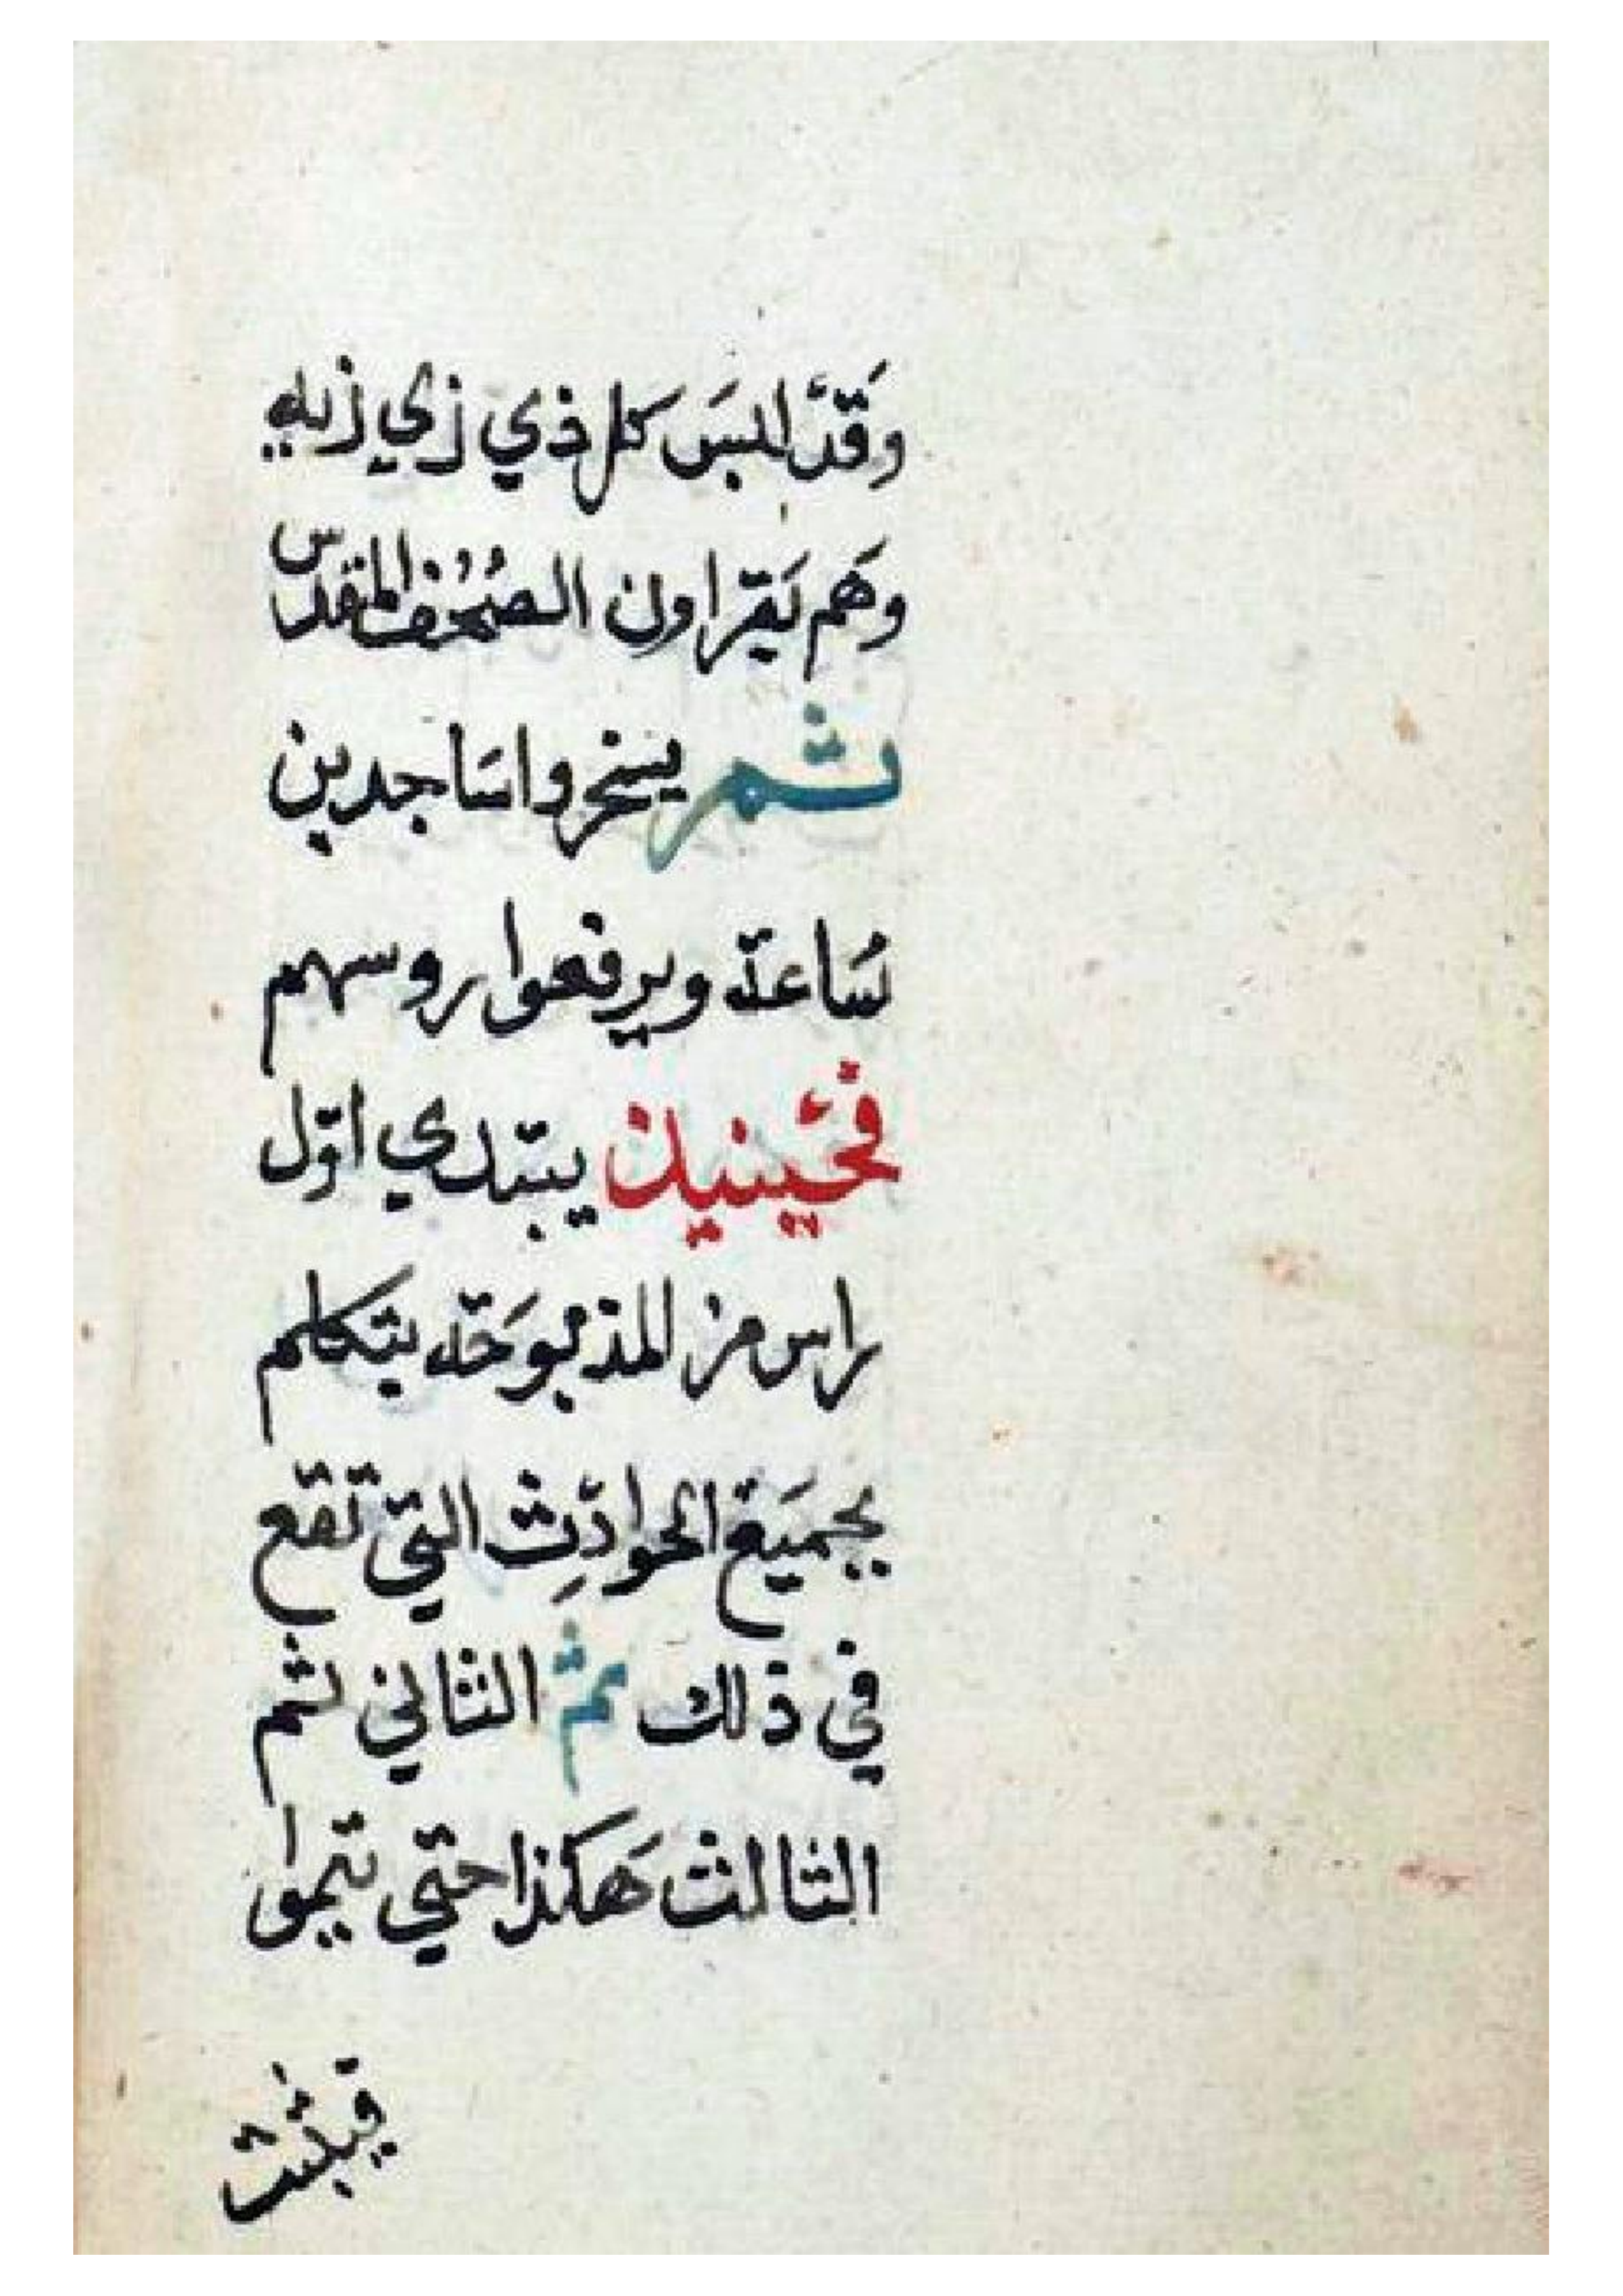 وَقَدَّ البسَ كل ذي زي زيه
وهَم يَقراون الصُحُف المقدس
ثم يسخروا سَاجدين
سَاعة ويرفعوا روسهم
فحَينيذ يبتدي اوّل
راس من المذبوحَة يتكلم
بجميَع الحوادِث التي تقع
في ذلك ثم الثاني ثم
الثالث هَكذا حتي يتموا